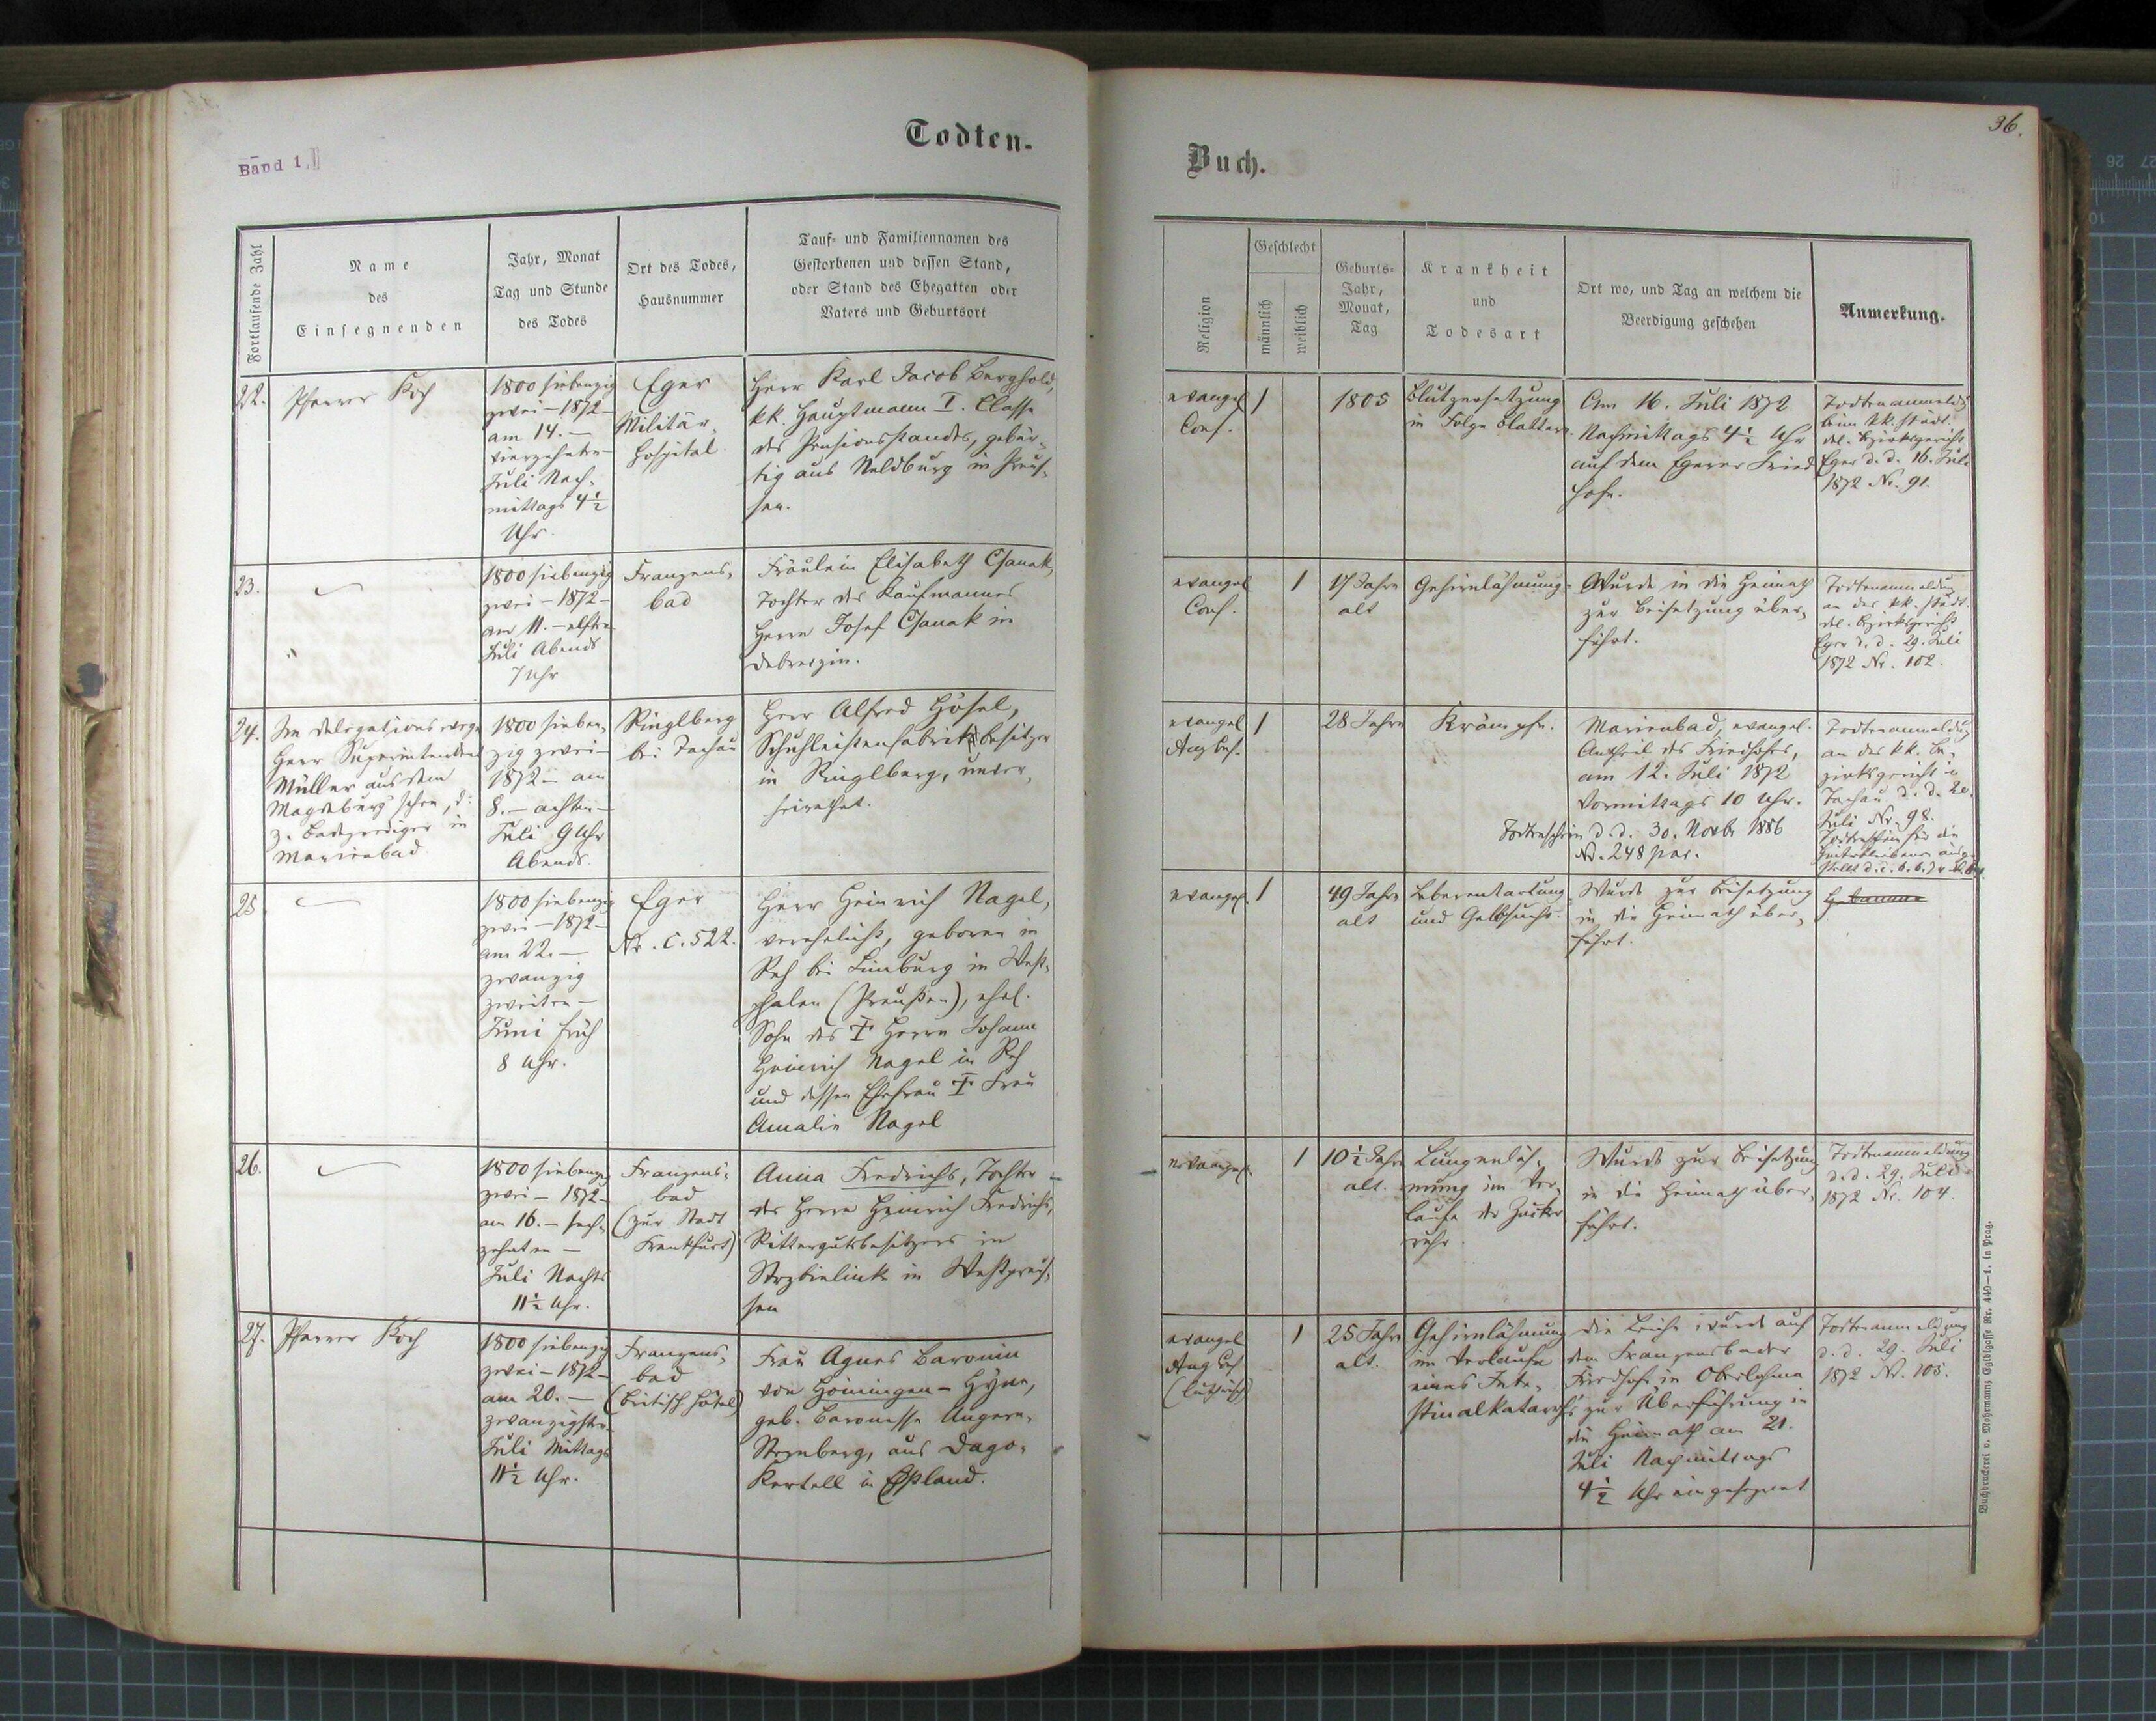 36.
Band 1.
Todten-
Buch.
Fortlaufende Zahl
Name
des
Einsegnenden
Jahr, Monat
Tag und Stunde
des Todes
Ort des Todes,
Hausnummer
Tauf- und Familiennamen des
Gestorbenen und dessen Stand,
oder Stand des Ehegatten oder
Vaters und Geburtsort
Religion
Geschlecht
männlich
weiblich
Geburts-
Jahr,
Monat,
Tag
Krankheit
und
Todesart
Ort wo, und Tag an welchem die
Beerdigung geschehen
Anmerkung.
22.
Pfarrer Koch
1800 siebenzig
zwei – 1872 –
am 14. –
vierzehnten –
Juli Nach-
mittags 4½
Uhr.
Eger
Militär-
hospital
Herr Karl Jacob Berghold,
kk. Hauptmann I. Classe
des Pensionsstandes, gebür-
tig aus Neldburg in Preus-
sen.
evangel
Conf.
1
1805
Blutzersetzung
in Folge Blattern.
Am 16. Juli 1872
Nachmittags 4½ Uhr
auf dem Egerer Fried
hofe.
Todtenanmeldg
beim kk. städt.
del. Bezirksgericht
Eger d. d. 16. Juli
1872 Nr. 91.
23.
1800 siebenzig
zwei – 1872 –
am 11. – elften
Juli Abends
7 Uhr
Franzens-
bad
Fräulein Elisabeth Csanak,
Tochter des Kaufmannes
Herrn Josef Csanak in
Debreczin.
evangel
Conf.
1
17 Jahre
alt
Gehirnlähmung.
Wurde in die Heimath
zur Beisetzung über-
führt.
Todtenanmeldung
an das kk. städt.
del. Bezirksgericht
Eger d. d. 29. Juli
1872 Nr. 102.
24.
Im Delegationswege
Herr Superintendent
Müller aus dem
Magdeburg'schen, d:
z. Badeprediger in
Marienbad
1800 sieben-
zig zwei –
1872 – am
8. – achten –
Juli 9 Uhr
Abends.
Ringlberg
bei Tachau
Herr Alfred Hösel,
Schuhleistenfabriksbesitzer
in Ringlberg, unver-
heirathet.
evangel
Augsb.
1
28 Jahre
Krämpfe.
Marienbad, evangel.
Antheil des Friedhofes,
am 12. Juli 1872
Vormittags 10 Uhr.
Todtenschein d. d. 30. Novbr 1886
Nr. 248 par.
Todtenanmeldung
an das kk. Be-
zirksgericht in
Tachau d. d. 20.
Juli Nr. 98.
Todtenschein für die
25
1800 siebenzig
zwei – 1872 –
am 22. –
zwanzig
zweiten –
Juni früh
8 Uhr.
Eger
Nr. C. 522.
Herr Heinrich Nagel,
verehelicht, geboren in
Reh bei Limburg in West-
phalen (Preußen), ehel.
Sohn des † Herrn Johann
Heinrich Nagel in Reh
und dessen Ehefrau † Frau
Amalie Nagel
evangel.
1
49 Jahre
alt
Leberentartung
und Gelbsucht.
Wurde zur Beisetzung
in die Heimath über-
führt.
26.
1800 siebenzig
zwei – 1872 –
am 16. – sech-
zehnten –
Juli Nachts
11½ Uhr.
Franzens-
bad
(zur Stadt
Frankfurt)
Anna Fredrichs, Tochter
des Herrn Heinrich Fredrichs,
Rittergutsbesitzers in
Strzbielinke in Westpreus-
sen
evangel.
1
10½ Jahre
alt.
Lungenläh-
mung im Ver-
laufe der Zucker
ruhr
Wurde zur Beisetzung
in die Heimath über-
führt.
Todtenanmeldung
d. d. 29. Juli
1872 Nr. 104.
27.
Pfarrer Koch
1800 siebenzig
zwei – 1872 –
am 20. –
zwanzigsten
Juli Mittags
11½ Uhr.
Franzens-
bad
(British Hôtel)
Frau Agnes Baronin
von Höiningen – Hüne,
geb. Baronesse Ungern-
Sternberg, aus Dago-
Kertell in Esthland.
evangel
Augsb
(lutherisch)
1
25 Jahre
alt.
Gehirnlähmung
im Verlaufe
eines Inte-
stinalkatarrh's
Die Leiche wurde auf
dem Franzensbader
Friedhofe in Oberlohma
zur Überführung in
die Heimath am 21.
Juli Nachmittags
4½ Uhr eingesegnet
Todtenanmeldung
d. d. 29. Juli
1872 Nr. 105.
Buchdruckerei v. Mohrmann, Egidigasse Nr. 440–1. in Prag.